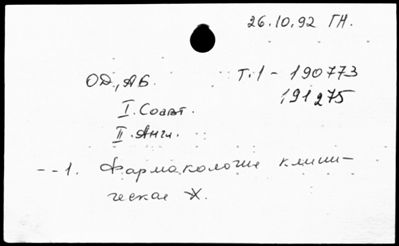 26.10.92 ГН.
ОД, АБ. т.1 - 190773
191275
I. Соавт.
II. Англ.
--1. Фармакология клини-
ческая X.